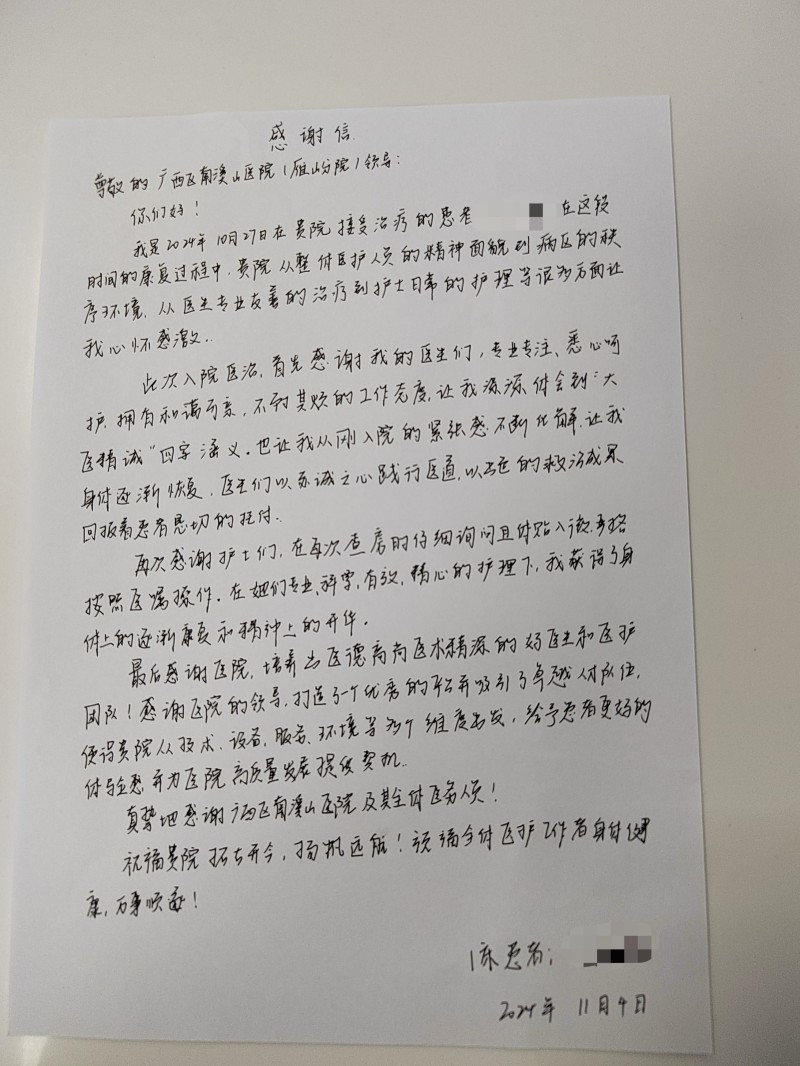 感谢信
尊敬的广西区南溪山医院(雁山分院)领导:
你们好!
我是2024年10月27日在贵院接受治疗的患者 在这段
时间的康复过程中,贵院从整体医护人员的精神面貌到病区的秩
序环境,从医生专业友善的治疗到护士日常的护理等诸多方面让
我心怀感激..
此次入院医治,首先感谢我的医生们,专业专注、悉心呵
护,拥有和蔼可亲,不厌其烦的工作态度,让我深深体会到"大
医精诚"四字涵义。也让我从刚入院的紧张感不断化解,让我
身体逐渐恢复,医生们以赤诚之心践行医道,以的救治成果
回报着患者恳切的托付..
再次感谢护士们,在每次查房时仔细询问且体贴入微,严格
按照医嘱操作。在她们专业、科学,有效,精心的护理下,我获得了身
体上的逐渐康复和精神上的升华。
最后感谢医院,培养出医德高尚医术精深的好医生和医护
团队!感谢医院的领导,打造了一个优秀的平台并吸引了卓越人才队伍,
使得贵院从技术、设备,服务、环境等多个维度出发,给予患者更好的
体验感并为医院高质量发展提供契机..
真挚地感谢广西区南溪山医院及其全体医务人员!
祝福贵院拓古开今,扬帆远航!祝福全体医护工作者身体健
康,万事顺意!
患者:
2024年 11月4日